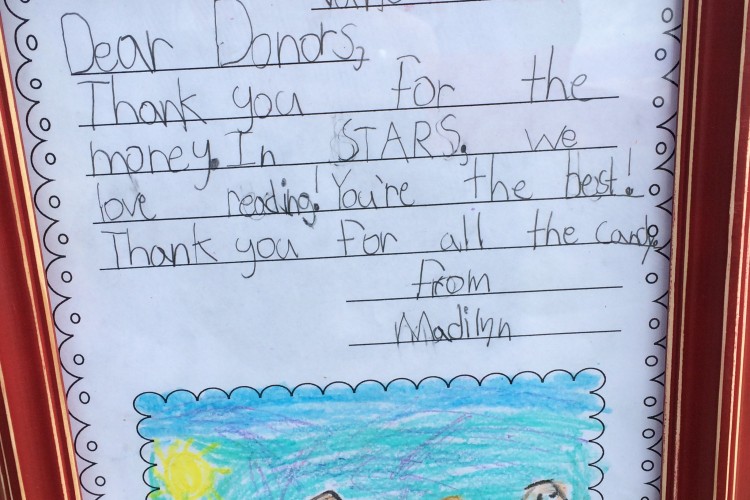 Dear Donors,
Thank you for the
money. In STARS, we
love reading! You're the best!
Thank you for all the candy.
from
Madilyn